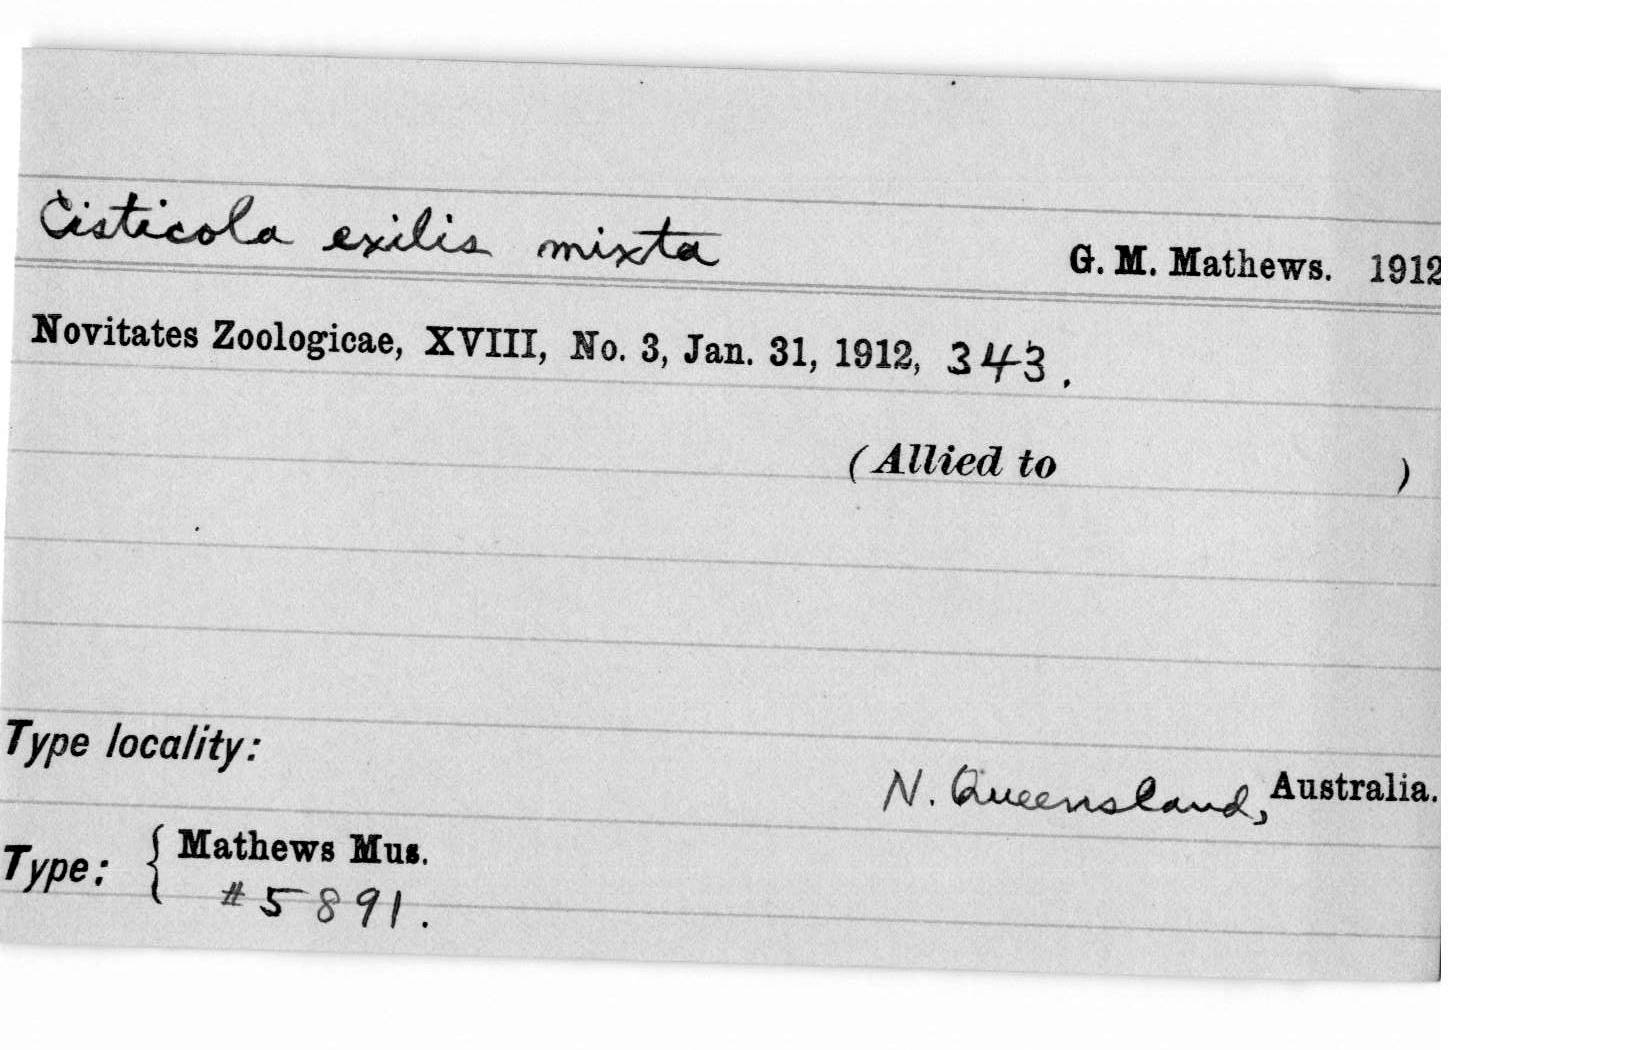 Cisticola exilis mixta G. M. Mathews. 1912
Novitates Zoologicae, XVIII, No. 3, Jan. 31, 1912, 343.
(Allied to )
Type locality:
N. Queensland, Australia.
Type: { Mathews Mus.
#5891.